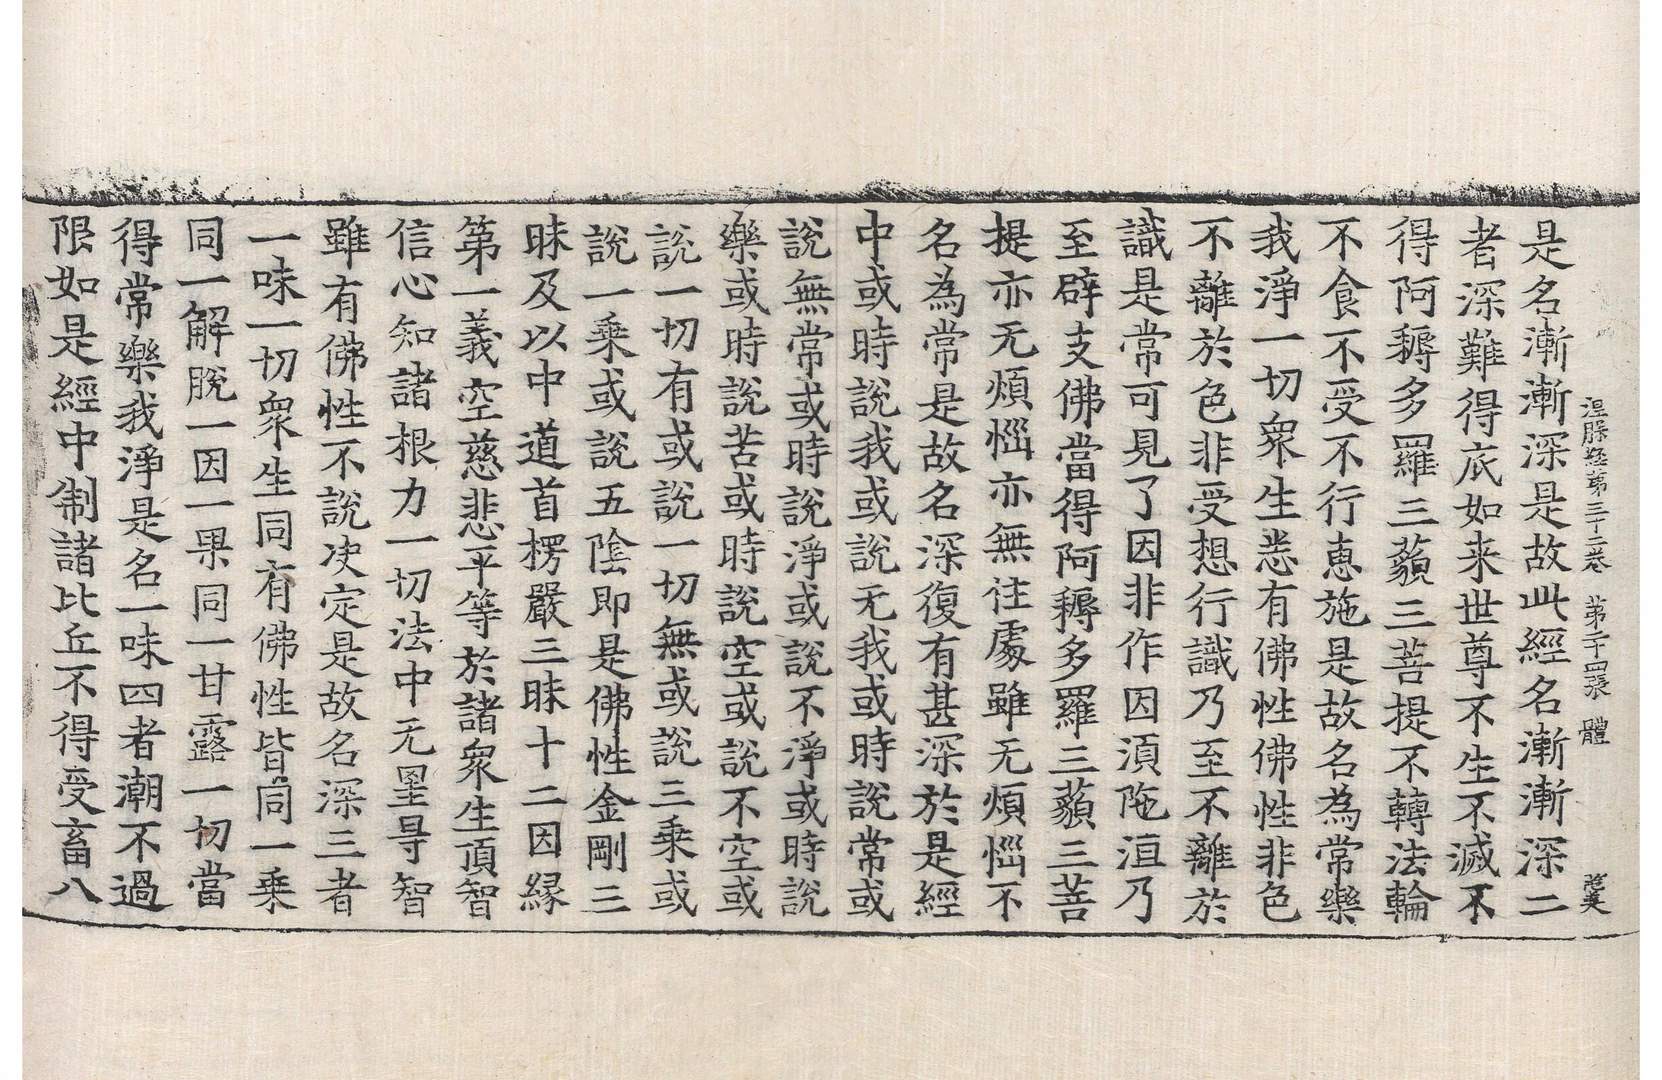 涅槃經第三十二卷 第十四張 體
是名漸漸深是故此經名漸漸深二
者深難得底如来世尊不生不滅不
得阿耨多羅三藐三菩提不轉法輪
不食不受不行惠施是故名為常樂
我淨一切衆生悉有佛性佛性非色
不離於色非受想行識乃至不離於
識是常可見了因非作因湏陁洹乃
至辟支佛當得阿耨多羅三藐三菩
提亦无煩惱亦無住處雖无煩惱不
名為常是故名深復有甚深於是經
中或時說我或說无我或時說常或
說無常或時說淨或說不淨或時說
樂或時說苦或時說空或說不空或
說一切有或說一切無或說三乘或
說一乘或說五陰即是佛性金剛三
昧及以中道首楞嚴三昧十二因縁
第一義空慈悲平等於諸衆生頂智
信心知諸根力一切法中无罣㝵智
雖有佛性不說决定是故名深三者
一味一切衆生同有佛性皆同一乘
同一解脫一因一果同一甘露一切當
得常樂我淨是名一味四者潮不過
限如是經中制諸比丘不得受畜八